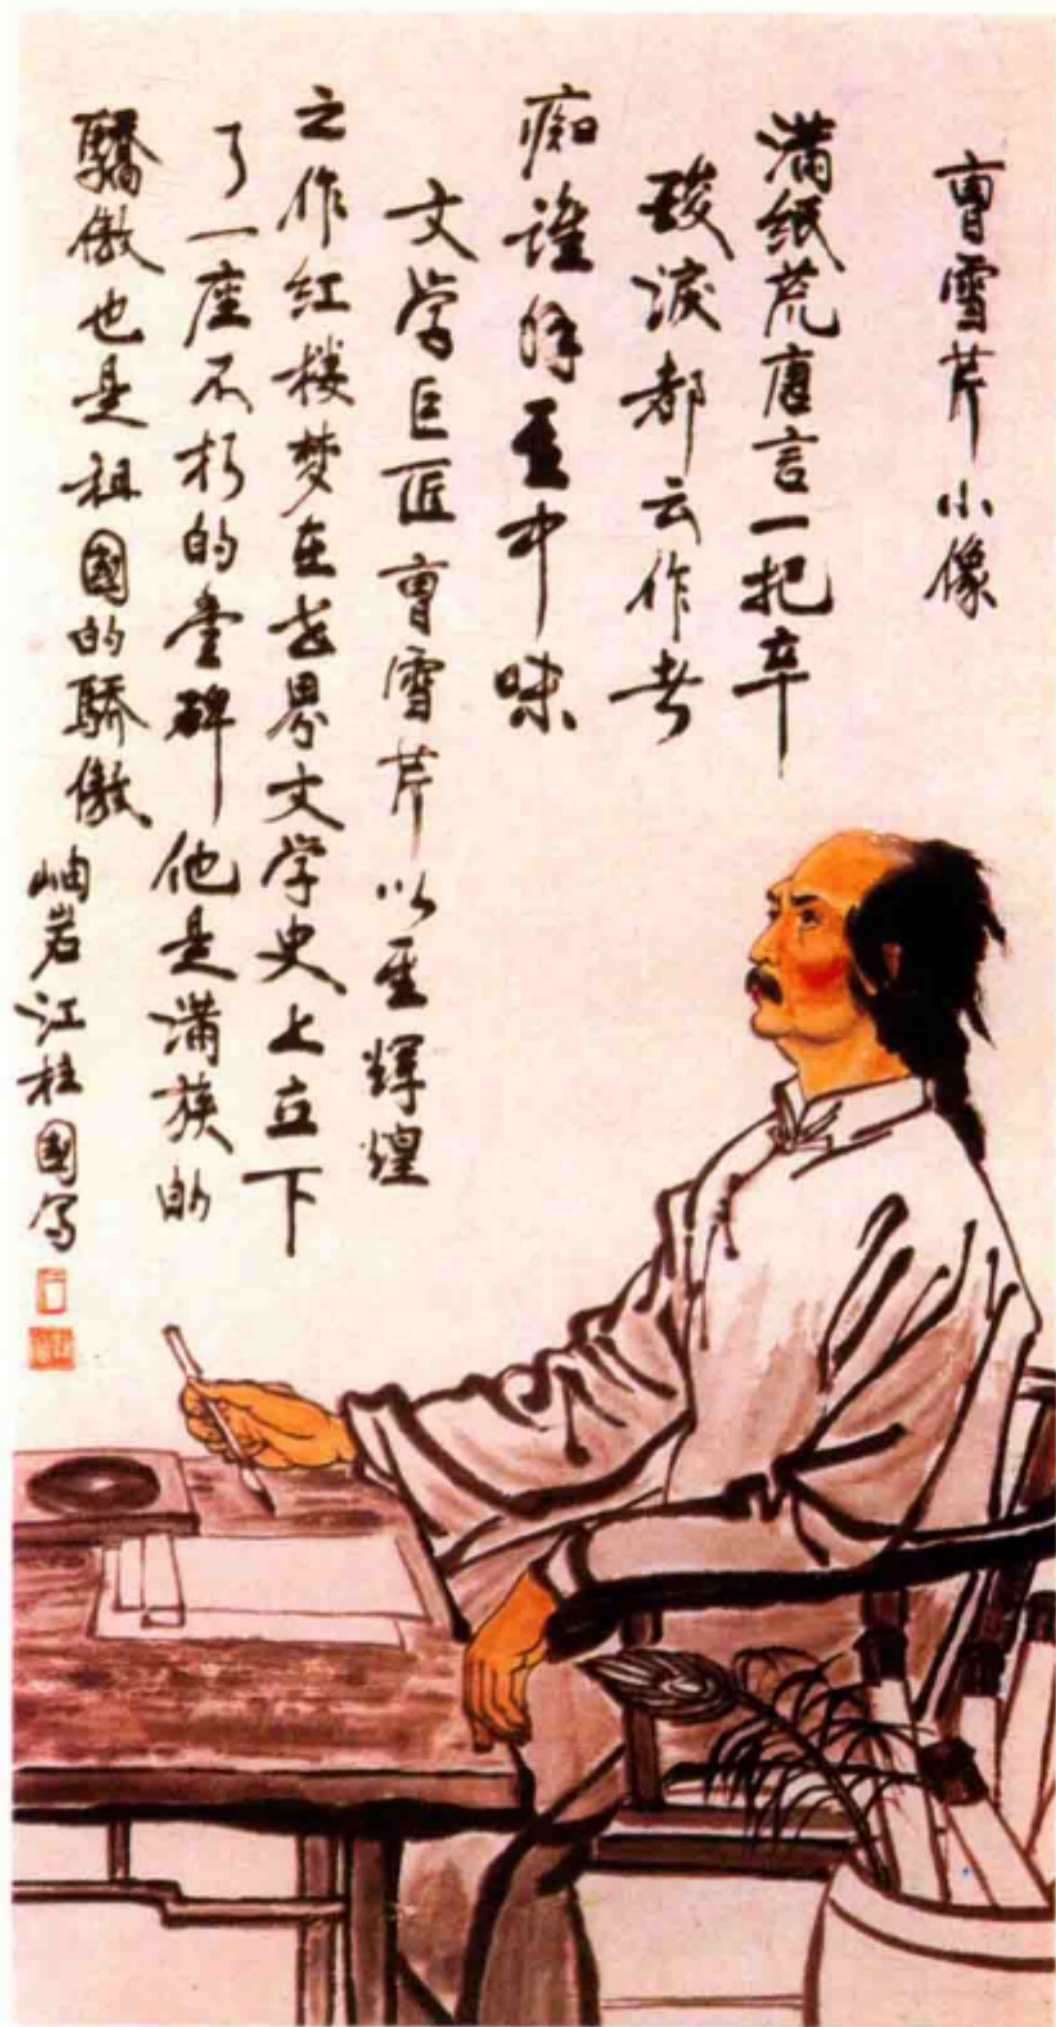 曹雪芹小像
满纸荒唐言一把辛
酸淚都云作者
痴谁解其中味
文学巨匠曹雪芹以其輝煌
之作红楼梦在世界文学史上立下
了一座不朽的丰碑他是满族的
驕傲也是祖國的驕傲
岫岩江桂國写